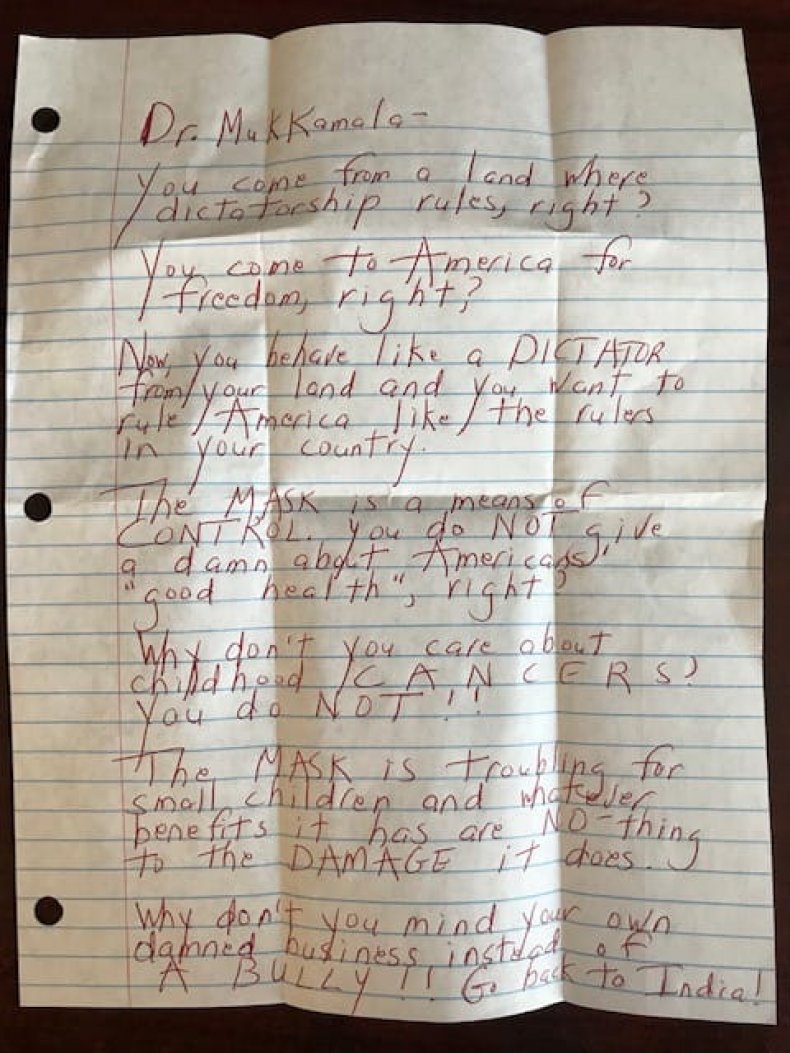 Dr. Mukkamala-
You come from a land where
dictatorship rules, right?
You come to America for
freedom, right?
Now, you behave like a DICTATOR
from your land and you want to
rule America like the rulers
in your country.
The MASK is a means of
CONTROL. You do NOT give
a damn about Americans'
"good health", right?
Why don't you care about
childhood CANCERS?
You do NOT!!
The MASK is troubling for
small children and whatever
benefits it has are NO-thing
to the DAMAGE it does.
Why don't you mind your own
damned business instead of
A BULLY!! Go back to India!